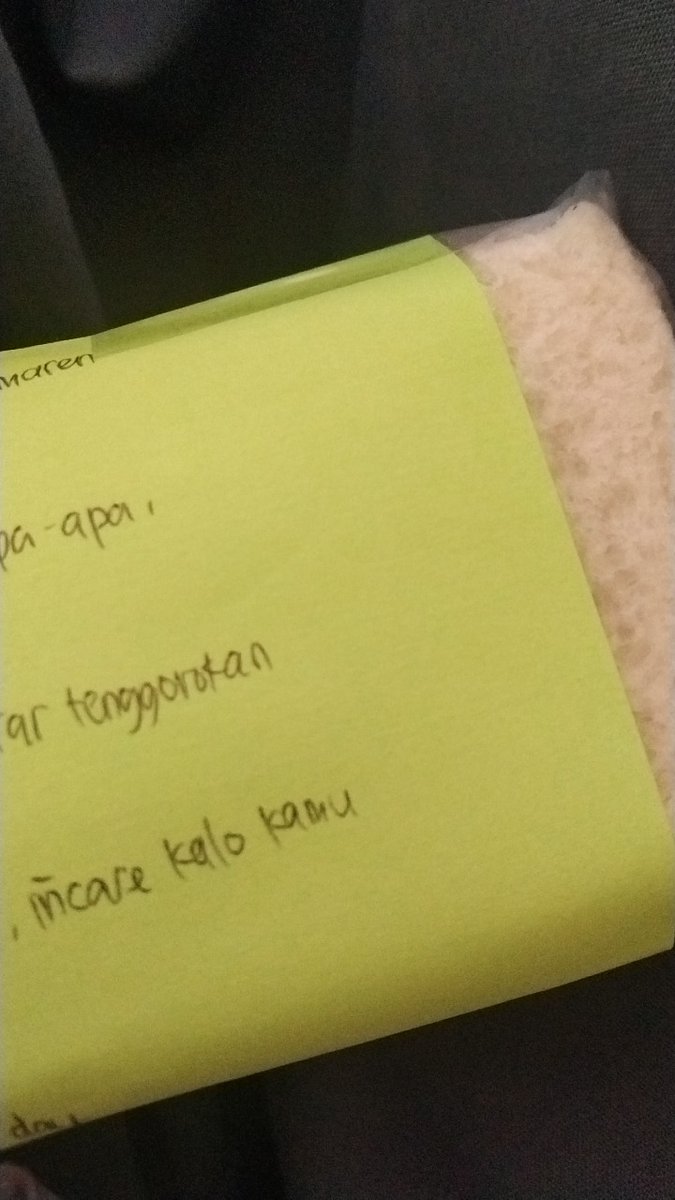 maren
pa-apa,
rar tenggorokan
, incase kalo kamu
day